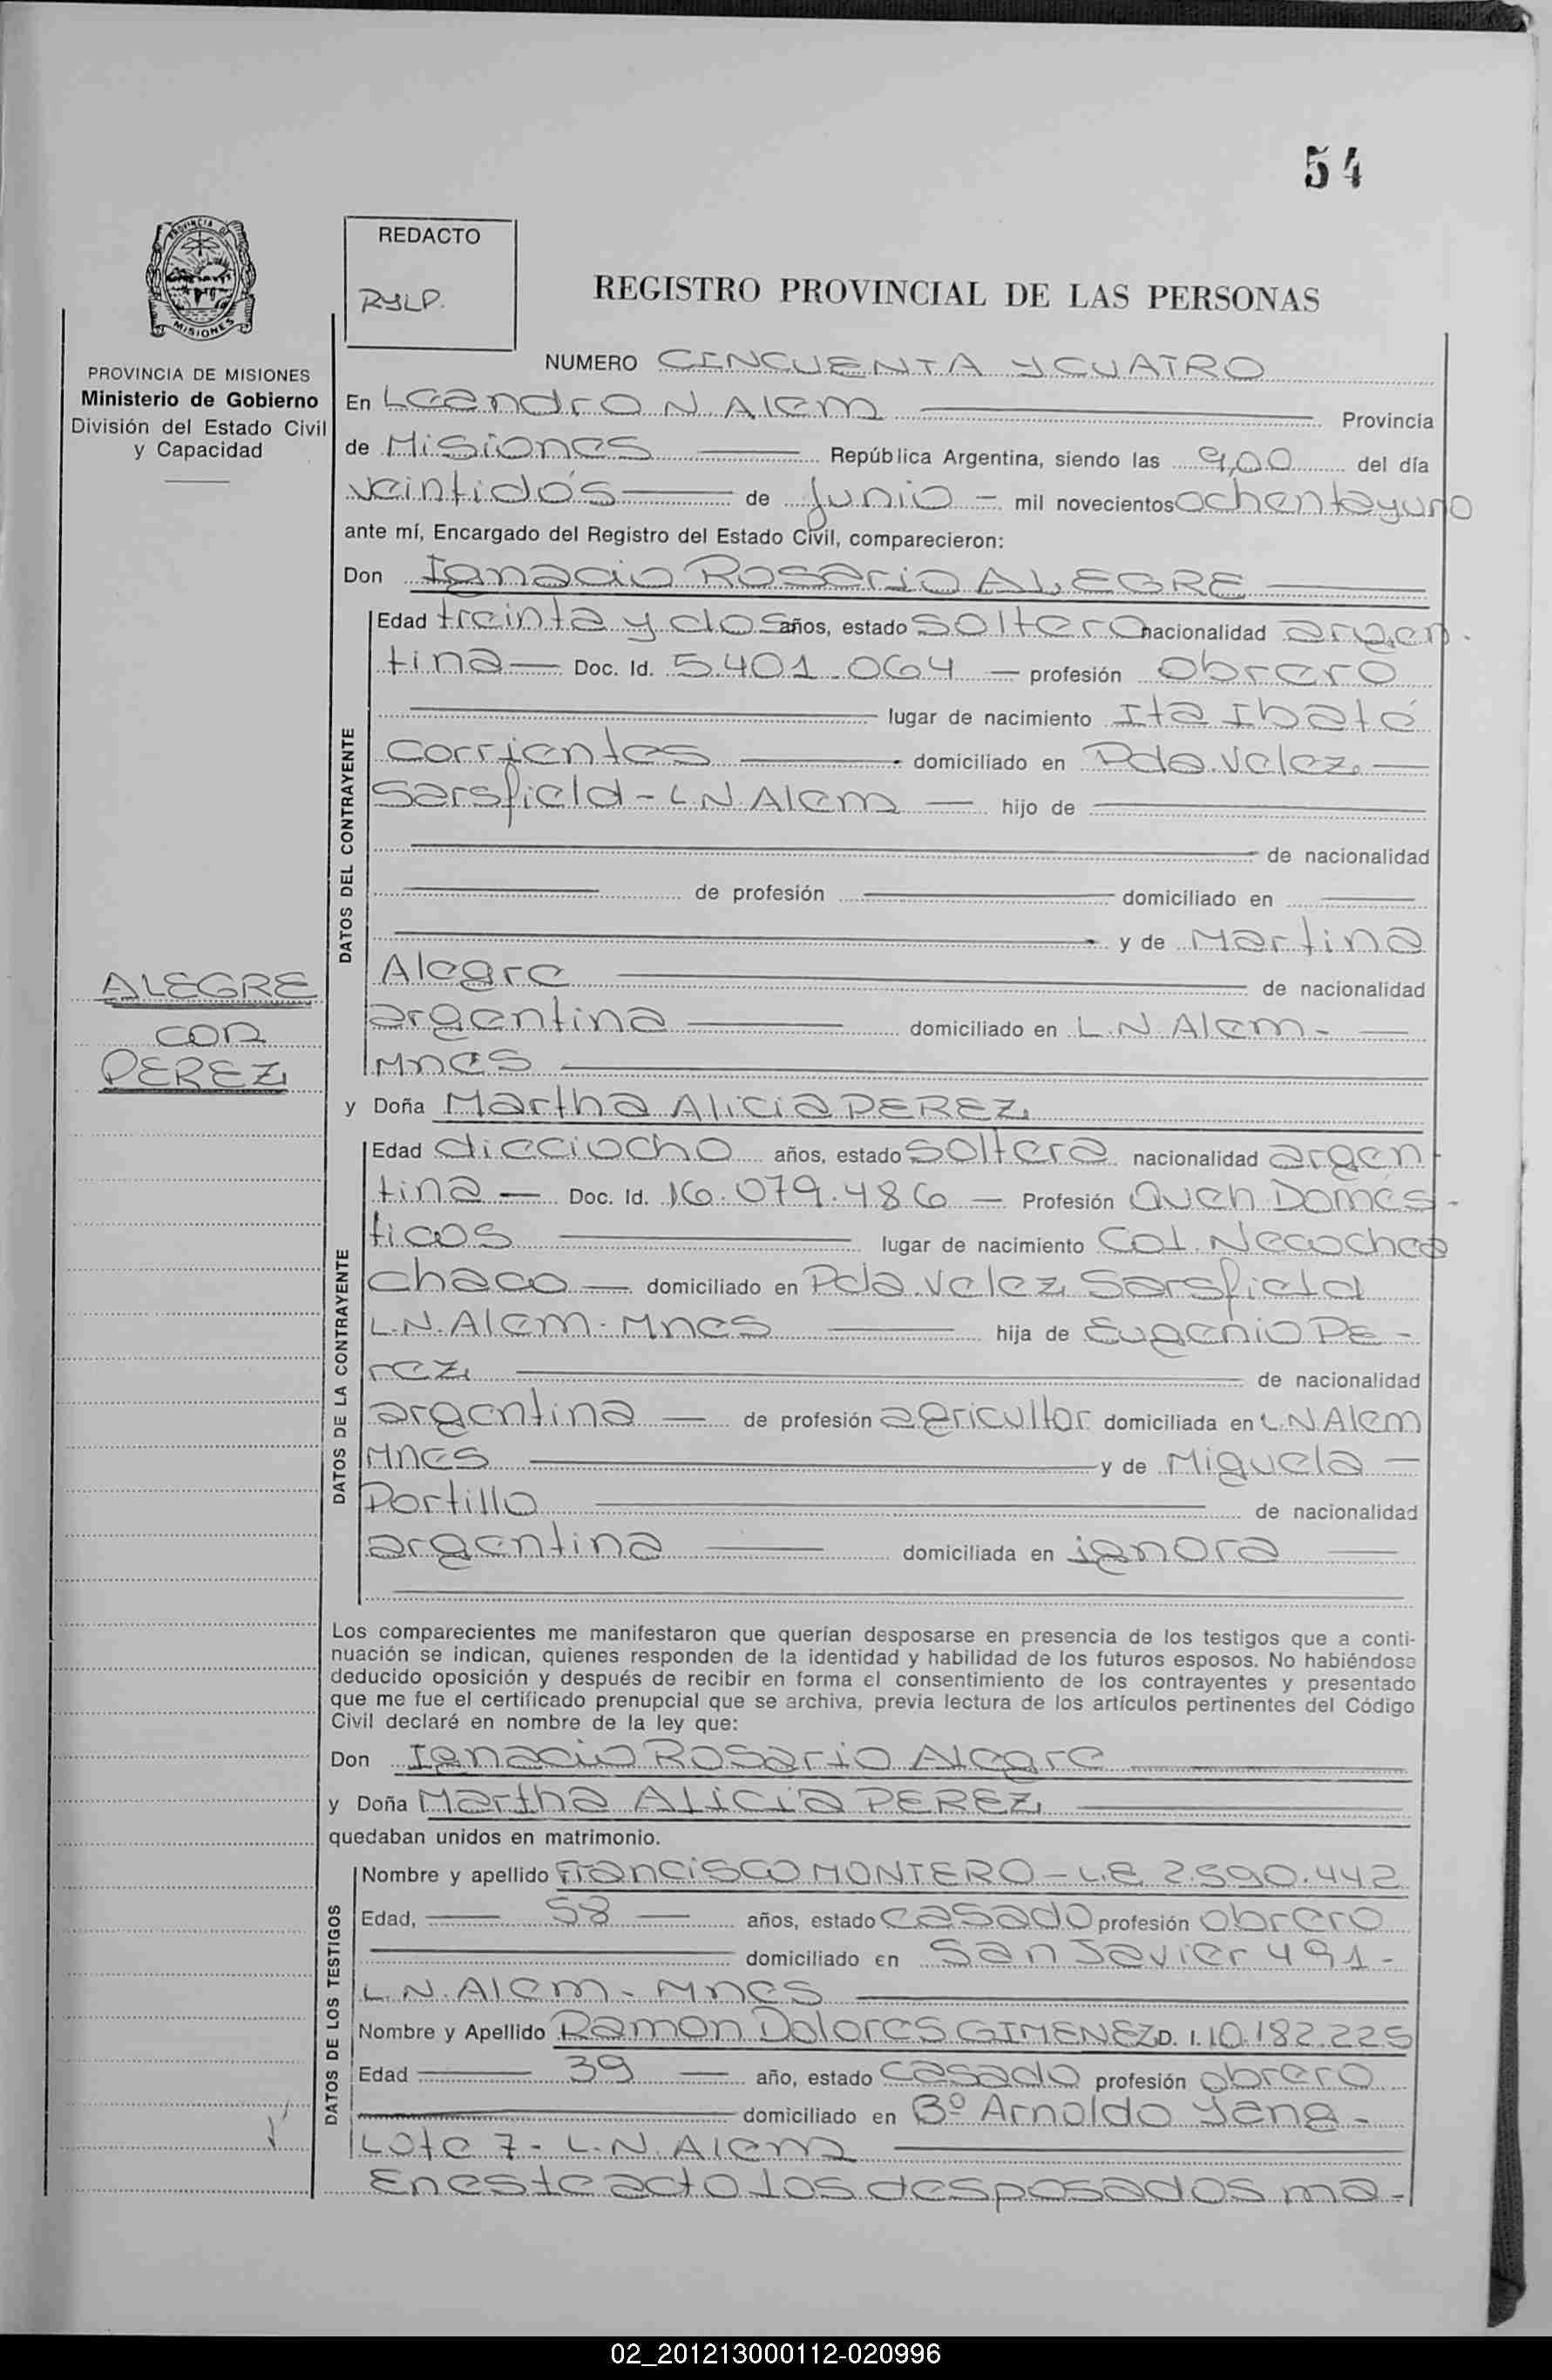 54
PROVINCIA DE MISIONES
REDACTO
RYLP.
REGISTRO PROVINCIAL DE LAS PERSONAS
PROVINCIA DE MISIONES
Ministerio de Gobierno
División del Estado Civil
y Capacidad
NUMERO CINCUENTA Y CUATRO
En Leandro N. Alem Provincia
de Misiones República Argentina, siendo las 9,00 del día
veintidós de Junio - mil novecientos ochentayuno
ante mí, Encargado del Registro del Estado Civil, comparecieron:
Don Ignacio Rosario ALEGRE
DATOS DEL CONTRAYENTE
Edad treinta y dos años, estado soltero nacionalidad argen-
tina Doc. Id. 5.401.064 profesión obrero
lugar de nacimiento Ita Ibaté
Corrientes domiciliado en Pda. Velez
Sarsfield - L.N. Alem hijo de
de nacionalidad
de profesión domiciliado en
y de Martina
Alegre de nacionalidad
argentina domiciliado en L.N. Alem -
Mnes
ALEGRE
con
PEREZ
y Doña Martha Alicia PEREZ
DATOS DE LA CONTRAYENTE
Edad dieciocho años, estado soltera nacionalidad argen
tina Doc. Id. 16.079.486 Profesión Queh. Domés-
ticos lugar de nacimiento Col. Necochea
Chaco domiciliado en Pda. Velez Sarsfield
L.N. Alem - Mnes hija de Eugenio Pe-
rez de nacionalidad
argentina de profesión agricultor domiciliada en L.N Alem
Mnes y de Miguela
Portillo de nacionalidad
argentina domiciliada en ignora
Los comparecientes me manifestaron que querían desposarse en presencia de los testigos que a conti-
nuación se indican, quienes responden de la identidad y habilidad de los futuros esposos. No habiéndose
deducido oposición y después de recibir en forma el consentimiento de los contrayentes y presentado
que me fue el certificado prenupcial que se archiva, previa lectura de los artículos pertinentes del Código
Civil declaré en nombre de la ley que:
Don Ignacio Rosario Alegre
y Doña Martha Alicia PEREZ
quedaban unidos en matrimonio.
DATOS DE LOS TESTIGOS
Nombre y apellido Francisco MONTERO - L.E 2.590.442
Edad, 58 años, estado casado profesión obrero
domiciliado en San Javier 491 -
L.N. Alem - Mnes
Nombre y Apellido Ramon Dolores GIMENEZ D. I. 10.182.225
Edad 39 año, estado casado profesión obrero
domiciliado en Bº Arnoldo Jang -
Lote 7 - L.N. Alem
En este acto los desposados ma-
02_201213000112-020996